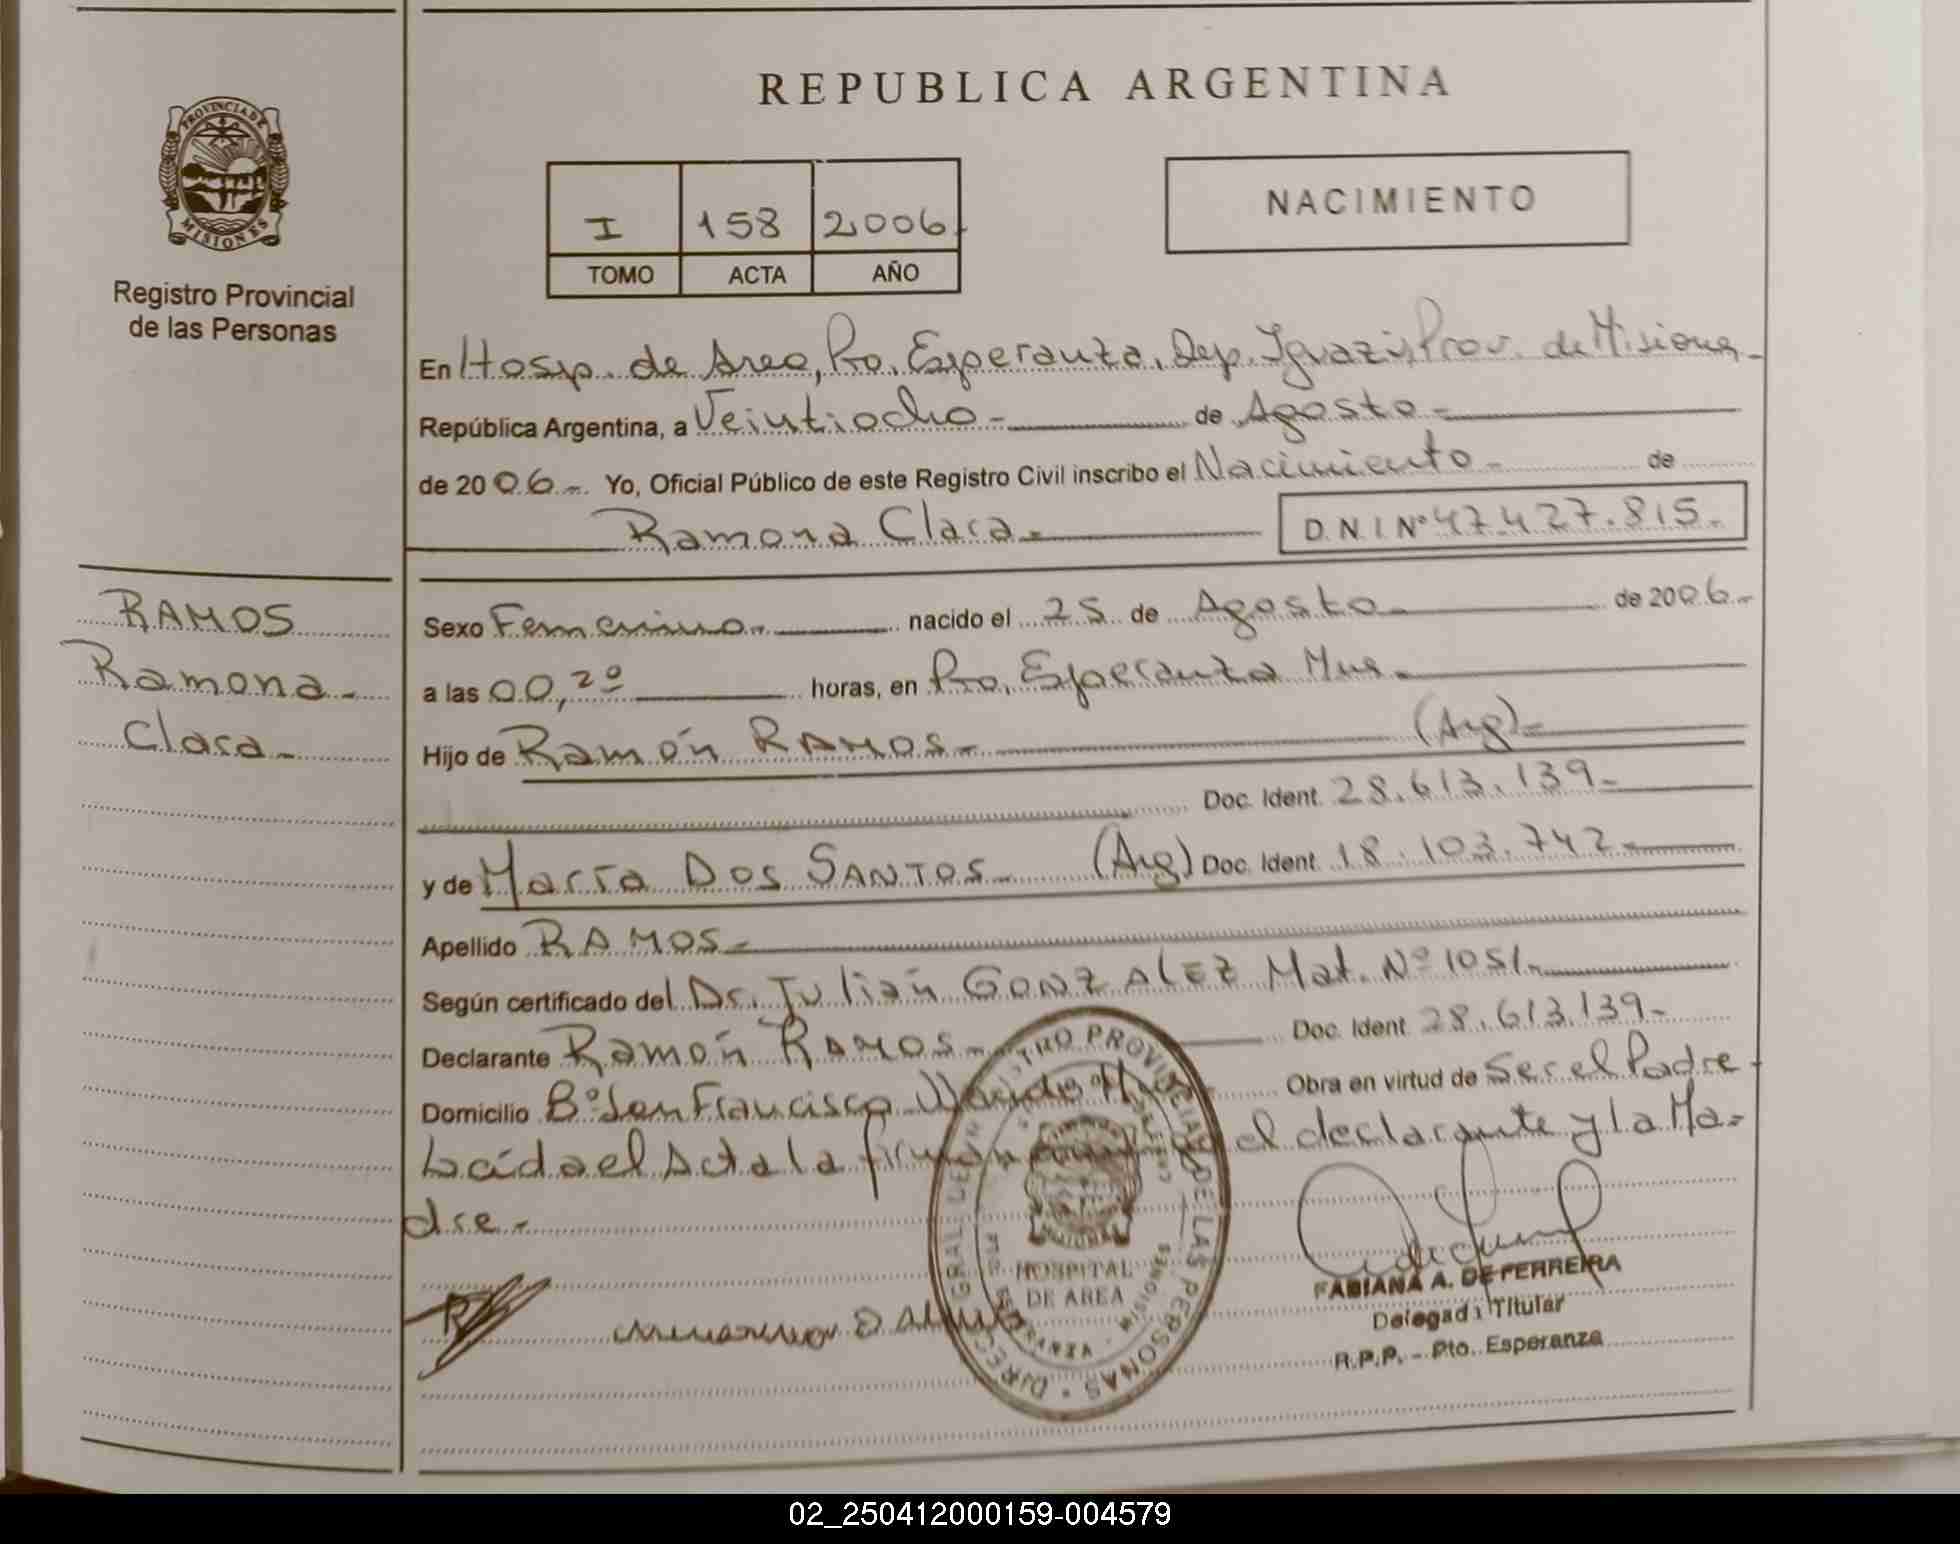 REPUBLICA ARGENTINA
PROVINCIA DE
MISIONES
Registro Provincial
de las Personas
I 158 2006
TOMO ACTA AÑO
NACIMIENTO
En Hosp. de Area, Pto. Esperanza, Dep. Iguazú, Prov. de Misiones
República Argentina, a Veintiocho - de Agosto -
de 2006 -. Yo, Oficial Público de este Registro Civil inscribo el Nacimiento - de
Ramona Clara - D.N.I Nº 47.427.815.-
RAMOS
Ramona -
Clara -
Sexo Femenino - nacido el 25 de Agosto - de 2006 -
a las 00,20 horas, en Pto. Esperanza Mnes. -
Hijo de Ramón RAMOS - (Arg) -
Doc. Ident. 28.613.139 -
y de María DOS SANTOS - (Arg) Doc. Ident. 18.103.742 -
Apellido RAMOS -
Según certificado del Dr. Julián GONZALEZ Mat. Nº 1051 -
Declarante Ramón RAMOS - Doc. Ident. 28.613.139 -
Domicilio Bº San Francisco Obra en virtud de Ser el Padre -
Leída el Acta la el declarante y la Ma-
dre -
DIREC. GRAL. DEL REGISTRO PROVINCIAL DE LAS PERSONAS
HOSPITAL
DE AREA
ESPERANZA - MISIONES
FABIANA A. DE FERREIRA
Delegada Titular
R.P.P. - Pto. Esperanza
02_250412000159-004579